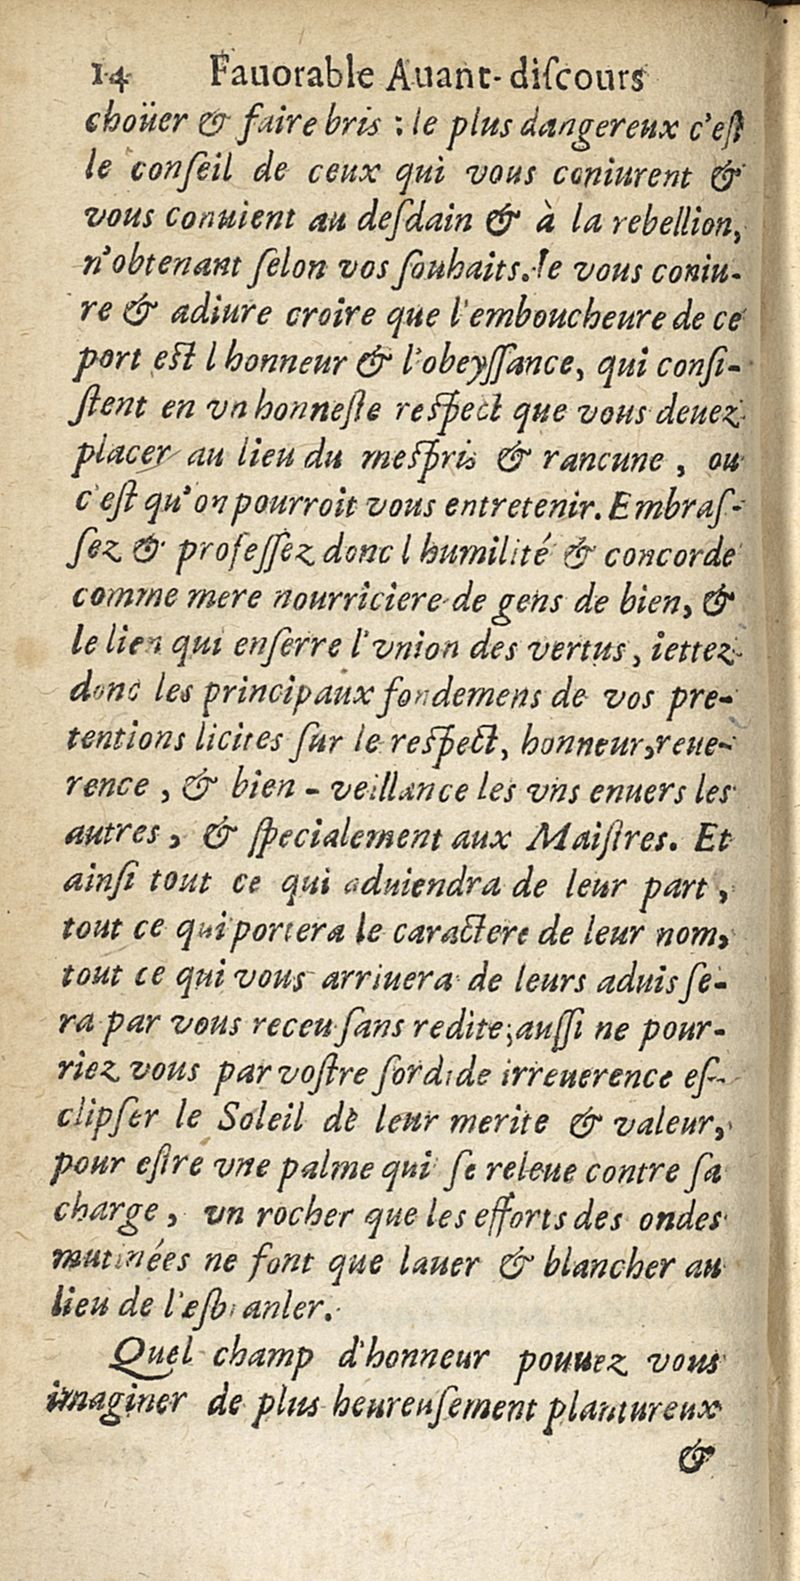 14 Fauorable Auant-diſcours
choüer & faire bris : le plus dangereux c'eſt
le conſeil de ceux qui vous coniurent &
vous conuient au deſdain & à la rebellion,
n'obtenant ſelon vos ſouhaits. Ie vous coniu-
re & adiure croire que l'emboucheure de ce
port eſt l honneur & l'obeyſſance, qui conſi-
ſtent en vn honneſte reſpect que vous deuez
placer au lieu du meſpris & rancune, ou
c'eſt qu'on pourroit vous entretenir. Embraſ-
ſez & profeſſez donc l humilité & concorde
comme mere nourriciere de gens de bien, &
le lien qui enſerre l'vnion des vertus, iettez
donc les principaux fondemens de vos pre-
tentions licites ſur le reſpect, honneur, reue-
rence, & bien-veillance les vns enuers les
autres, & ſpecialement aux Maiſtres. Et
ainſi tout ce qui aduiendra de leur part,
tout ce qui portera le caractere de leur nom,
tout ce qui vous arriuera de leurs aduis ſe-
ra par vous receu ſans redite; auſſi ne pour-
riez vous par voſtre ſordide irreuerence eſ-
clipſer le Soleil de leur merite & valeur,
pour eſtre vne palme qui ſe releue contre ſa
charge, vn rocher que les efforts des ondes
mutinées ne font que lauer & blancher au
lieu de l'eſbranler.
Quel champ d'honneur pouuez vous
imaginer de plus heureuſement plantureux
&